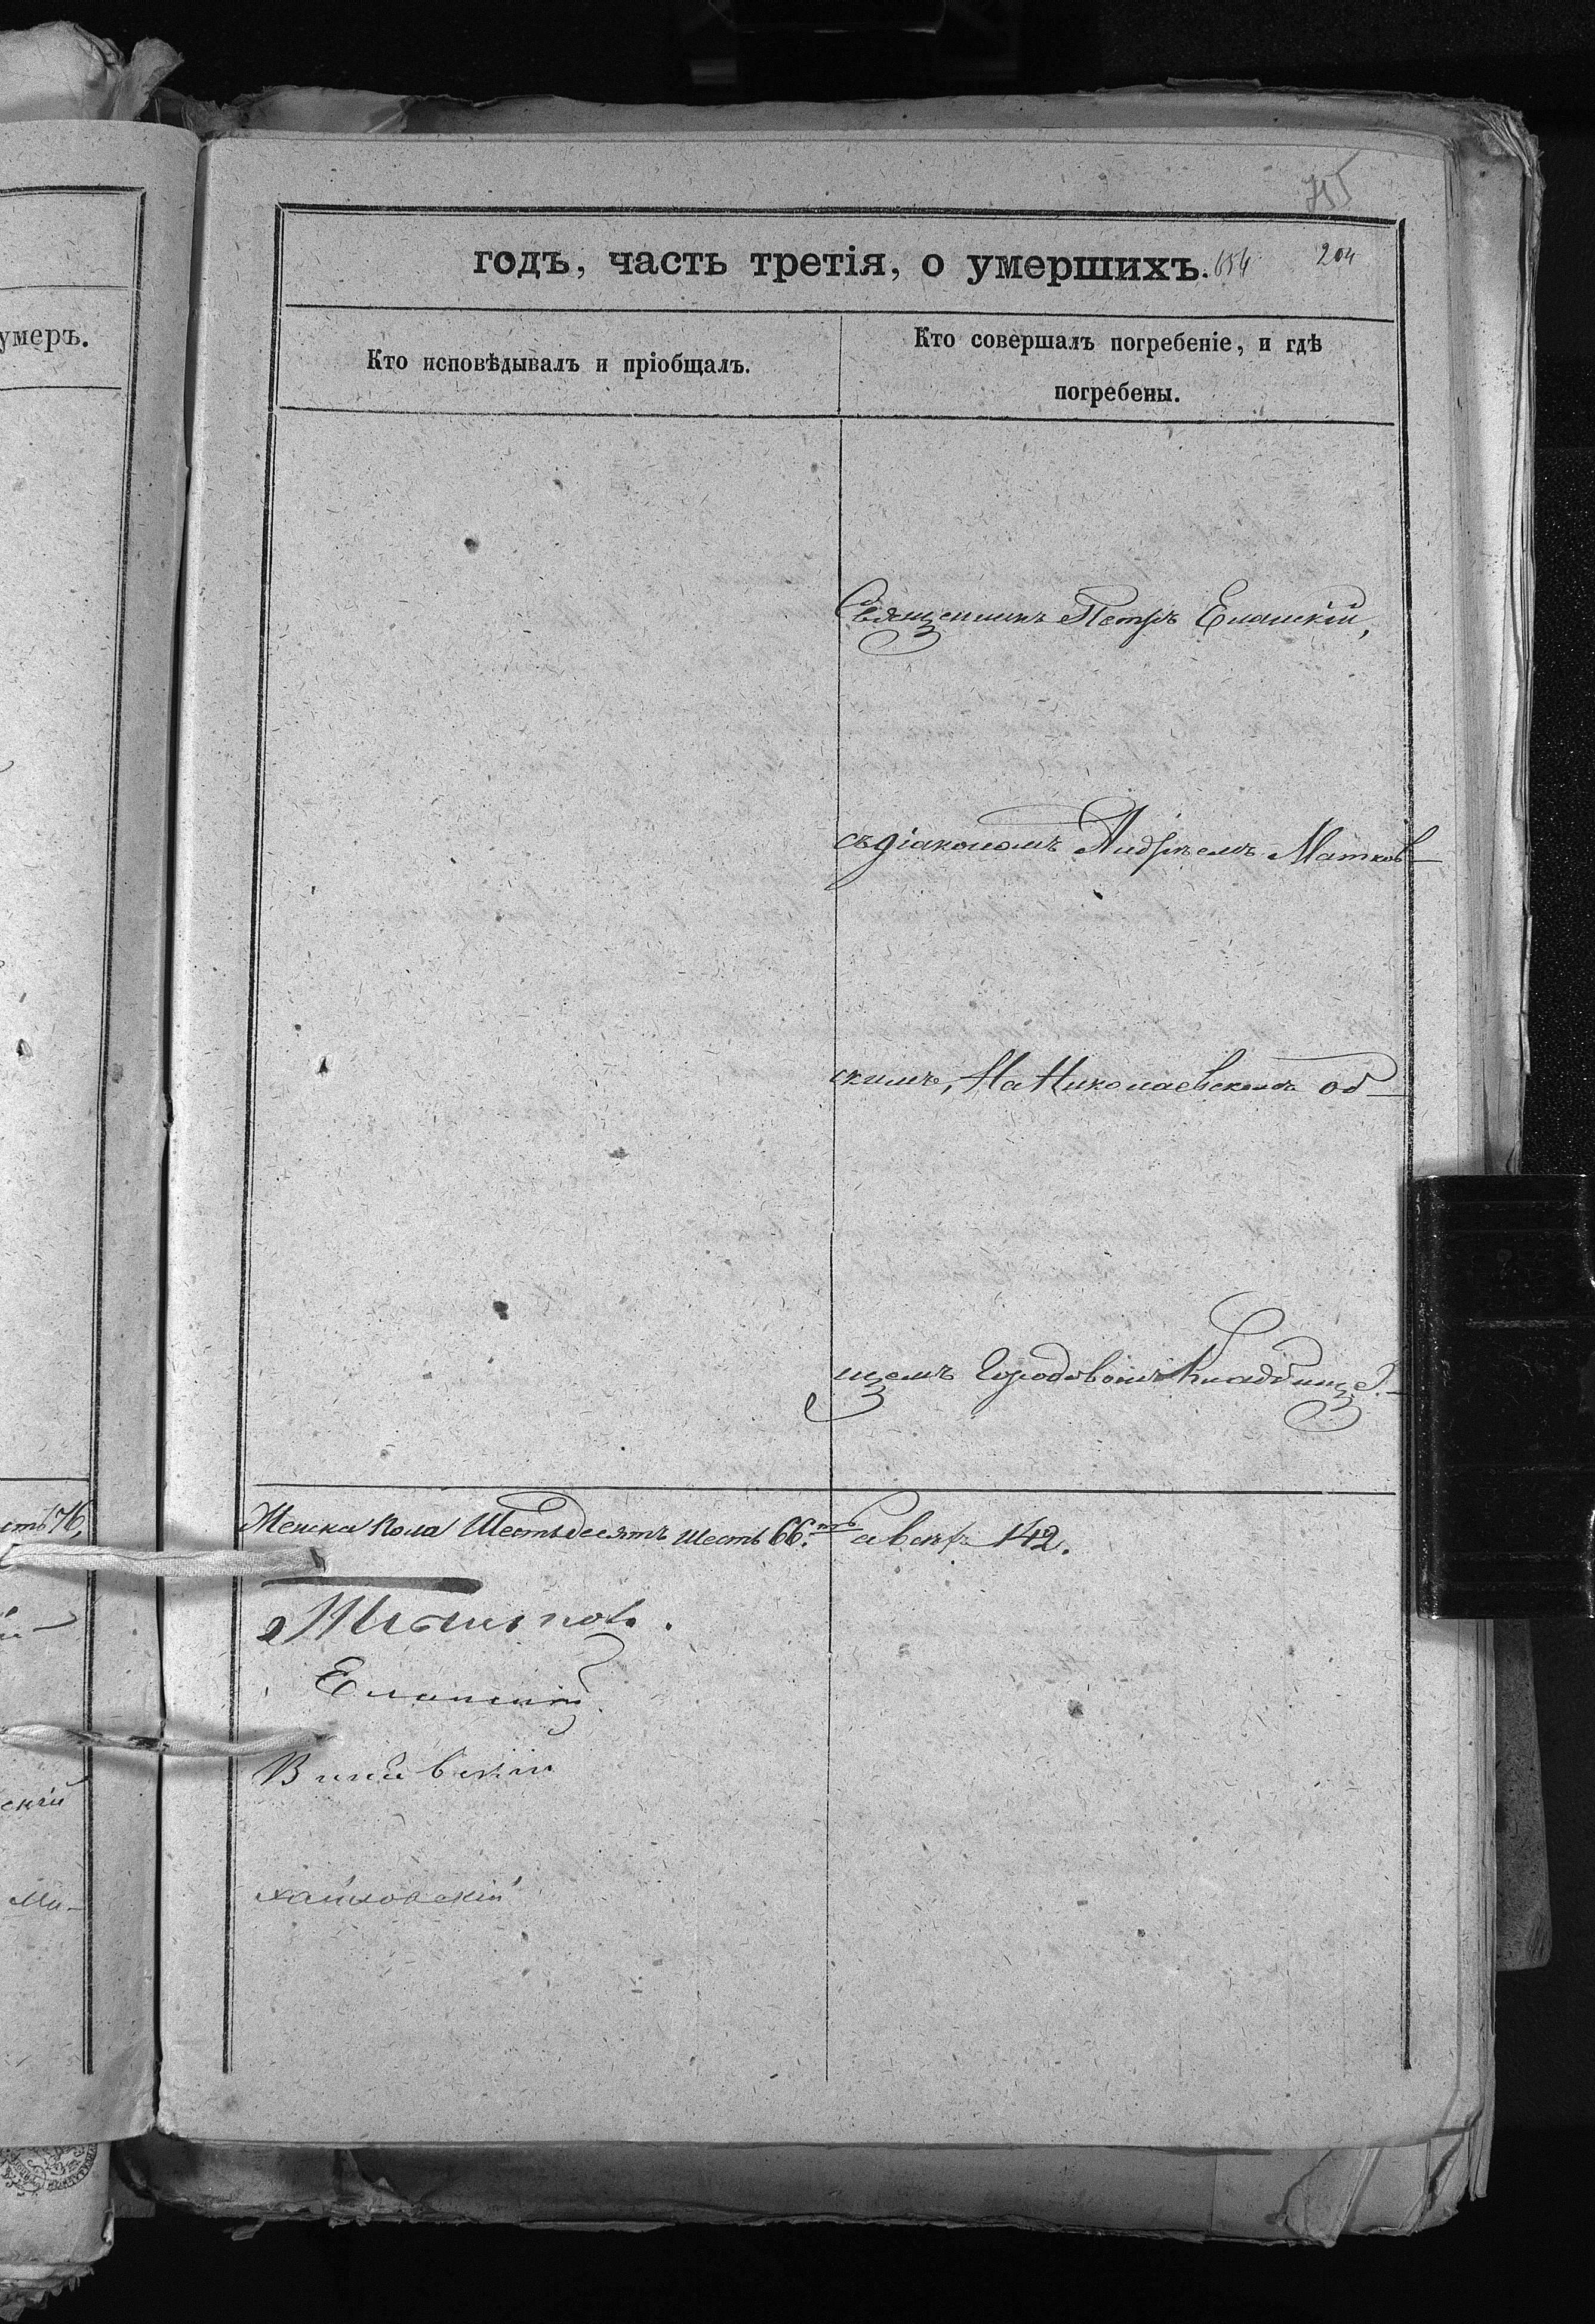 755
годъ, часть третія, о умершихъ. 654 204
умеръ.
Кто исповѣдывалъ и пріобщалъ.
Кто совершалъ погребеніе, и гдѣ
погребены.
Священникъ Петръ Еланскій,
съ діакономъ Андреемъ Матков-
скимъ, На Николаевскомъ об-
щемъ Городовомъ Кладбище.
сть 76,
Женска пола Шестьдесятъ шесть 66.ть а всѣхъ 142.
Еланскій
скій
Ми-
хайловскій